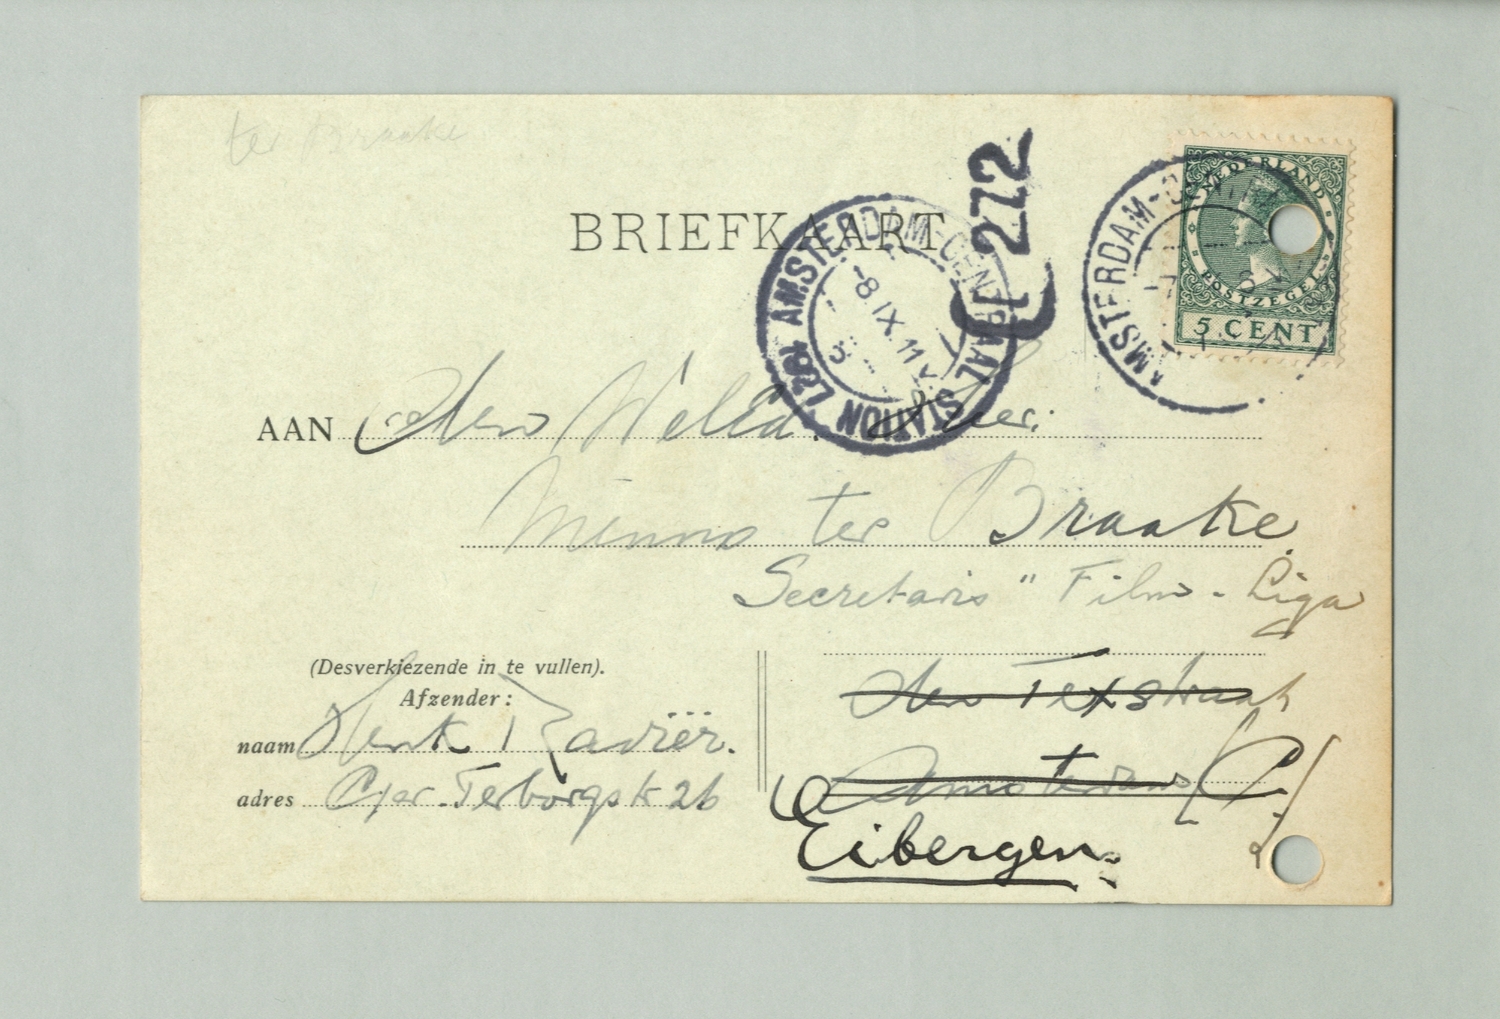 ter Braake
BRIEFKAART
272
C
AMSTERDAM-CENTRAAL STATION
-8 IX 11 V
NEDERLAND
POSTZEGEL
5 CENT
AMSTERDAM-CENTRAAL
AAN den WelEd. Heer:
Menno ter Braake.
Secretaris " Film - Liga
den Texstraat
Amsterdam (C.)
Eibergen.
(Desverkiezende in te vullen).
Afzender:
naam Henk
adres Ger. Terborgstr 26